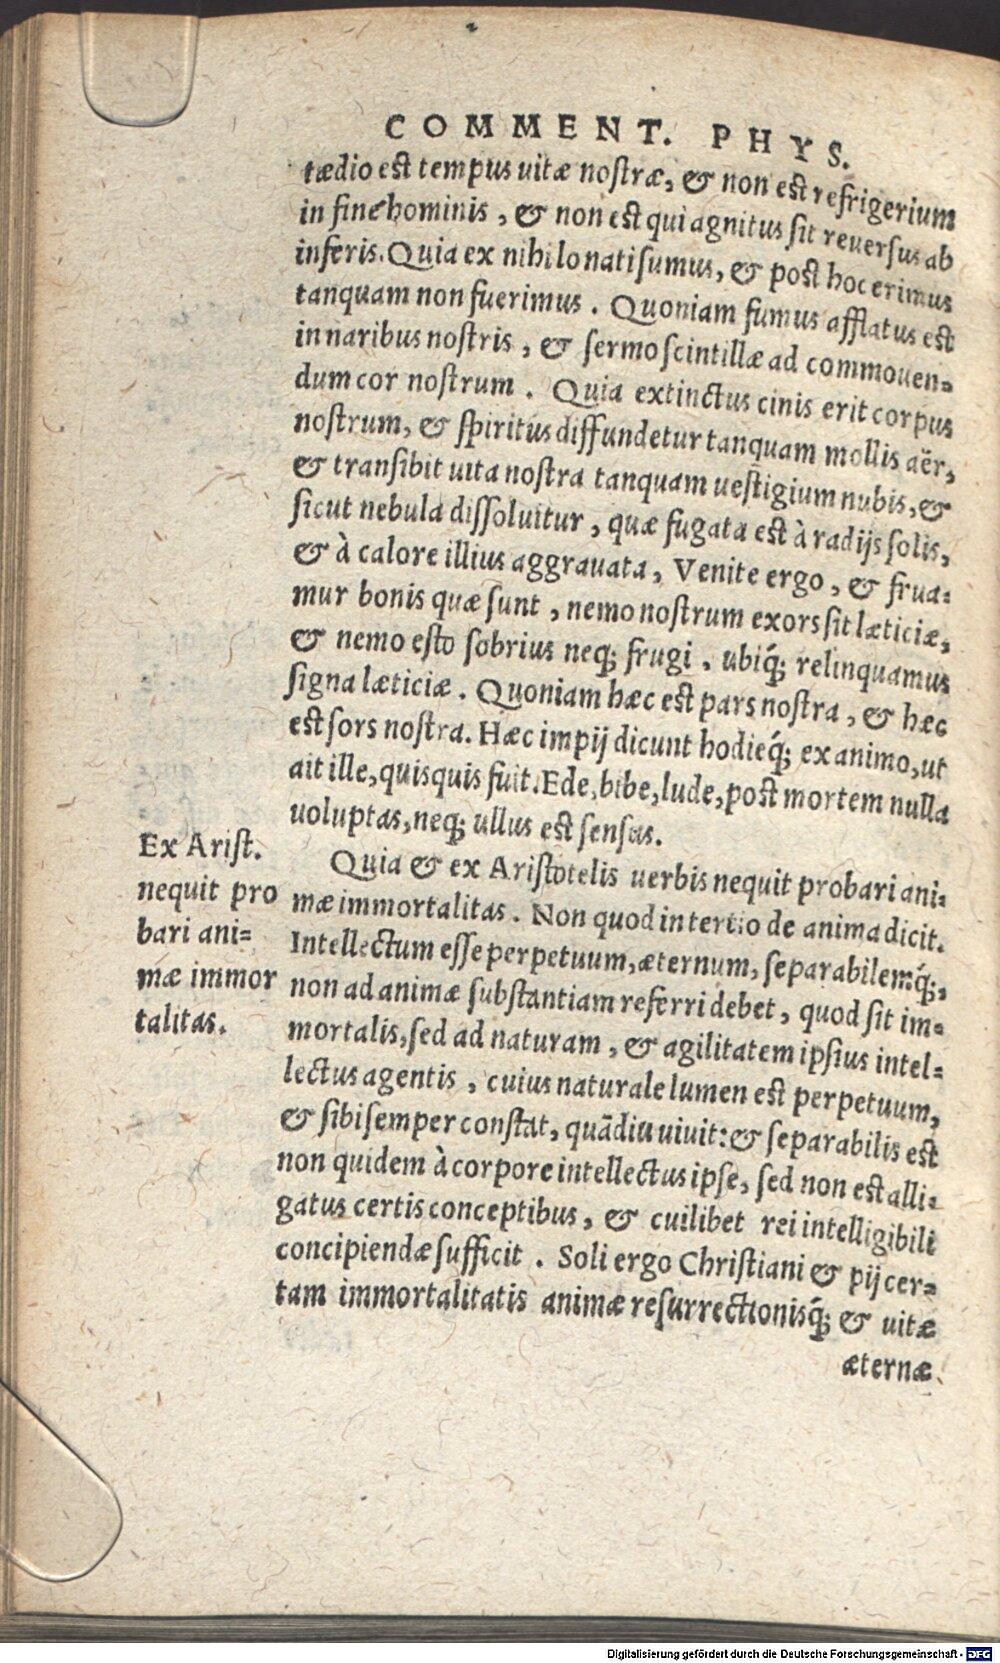 COMMENT. PHYS.
tædio est tempus uitæ nostræ, & non est refrigerium
in fine hominis, & non est qui agnitus sit reuersus ab
inferis. Quia ex nihilo nati sumus, & post hoc erimus
tanquam non fuerimus. Quoniam fumus afflatus est
in naribus nostris, & sermo scintillæ ad commouen=
dum cor nostrum. Quia extinctus cinis erit corpus
nostrum, & spiritus diffundetur tanquam mollis aër,
& transibit uita nostra tanquam uestigium nubis, &
sicut nebula dissoluitur, quæ fugata est à radijs solis,
& à calore illius aggrauata, Venite ergo, & frua=
mur bonis quæ sunt, nemo nostrum exors sit læticiæ,
& nemo esto sobrius neq; frugi. ubiq́; relinquamus
signa læticiæ. Quoniam hæc est pars nostra, & hæc
est sors nostra. Hæc impij dicunt hodieq́; ex animo, ut
ait ille, quisquis fuit. Ede, bibe, lude, post mortem nulla
uoluptas, neq; ullus est sensus.
Ex Arist.
nequit pro
bari ani=
mæ immor
talitas.
Quia & ex Aristotelis uerbis nequit probari ani=
mæ immortalitas. Non quod in tertio de anima dicit.
Intellectum esse perpetuum, æternum, separabilemq́;,
non ad animæ substantiam referri debet, quod sit im=
mortalis, sed ad naturam, & agilitatem ipsius intel=
lectus agentis, cuius naturale lumen est perpetuum,
& sibi semper constat, quādiu uiuit: & separabilis est
non quidem à corpore intellectus ipse, sed non est alli=
gatus certis conceptibus, & cuilibet rei intelligibili
concipiendæ sufficit. Soli ergo Christiani & pij cer=
tam immortalitatis animæ resurrectionisq́; & uitæ
æternæ
Digitalisierung gefördert durch die Deutsche Forschungsgemeinschaft - DFG